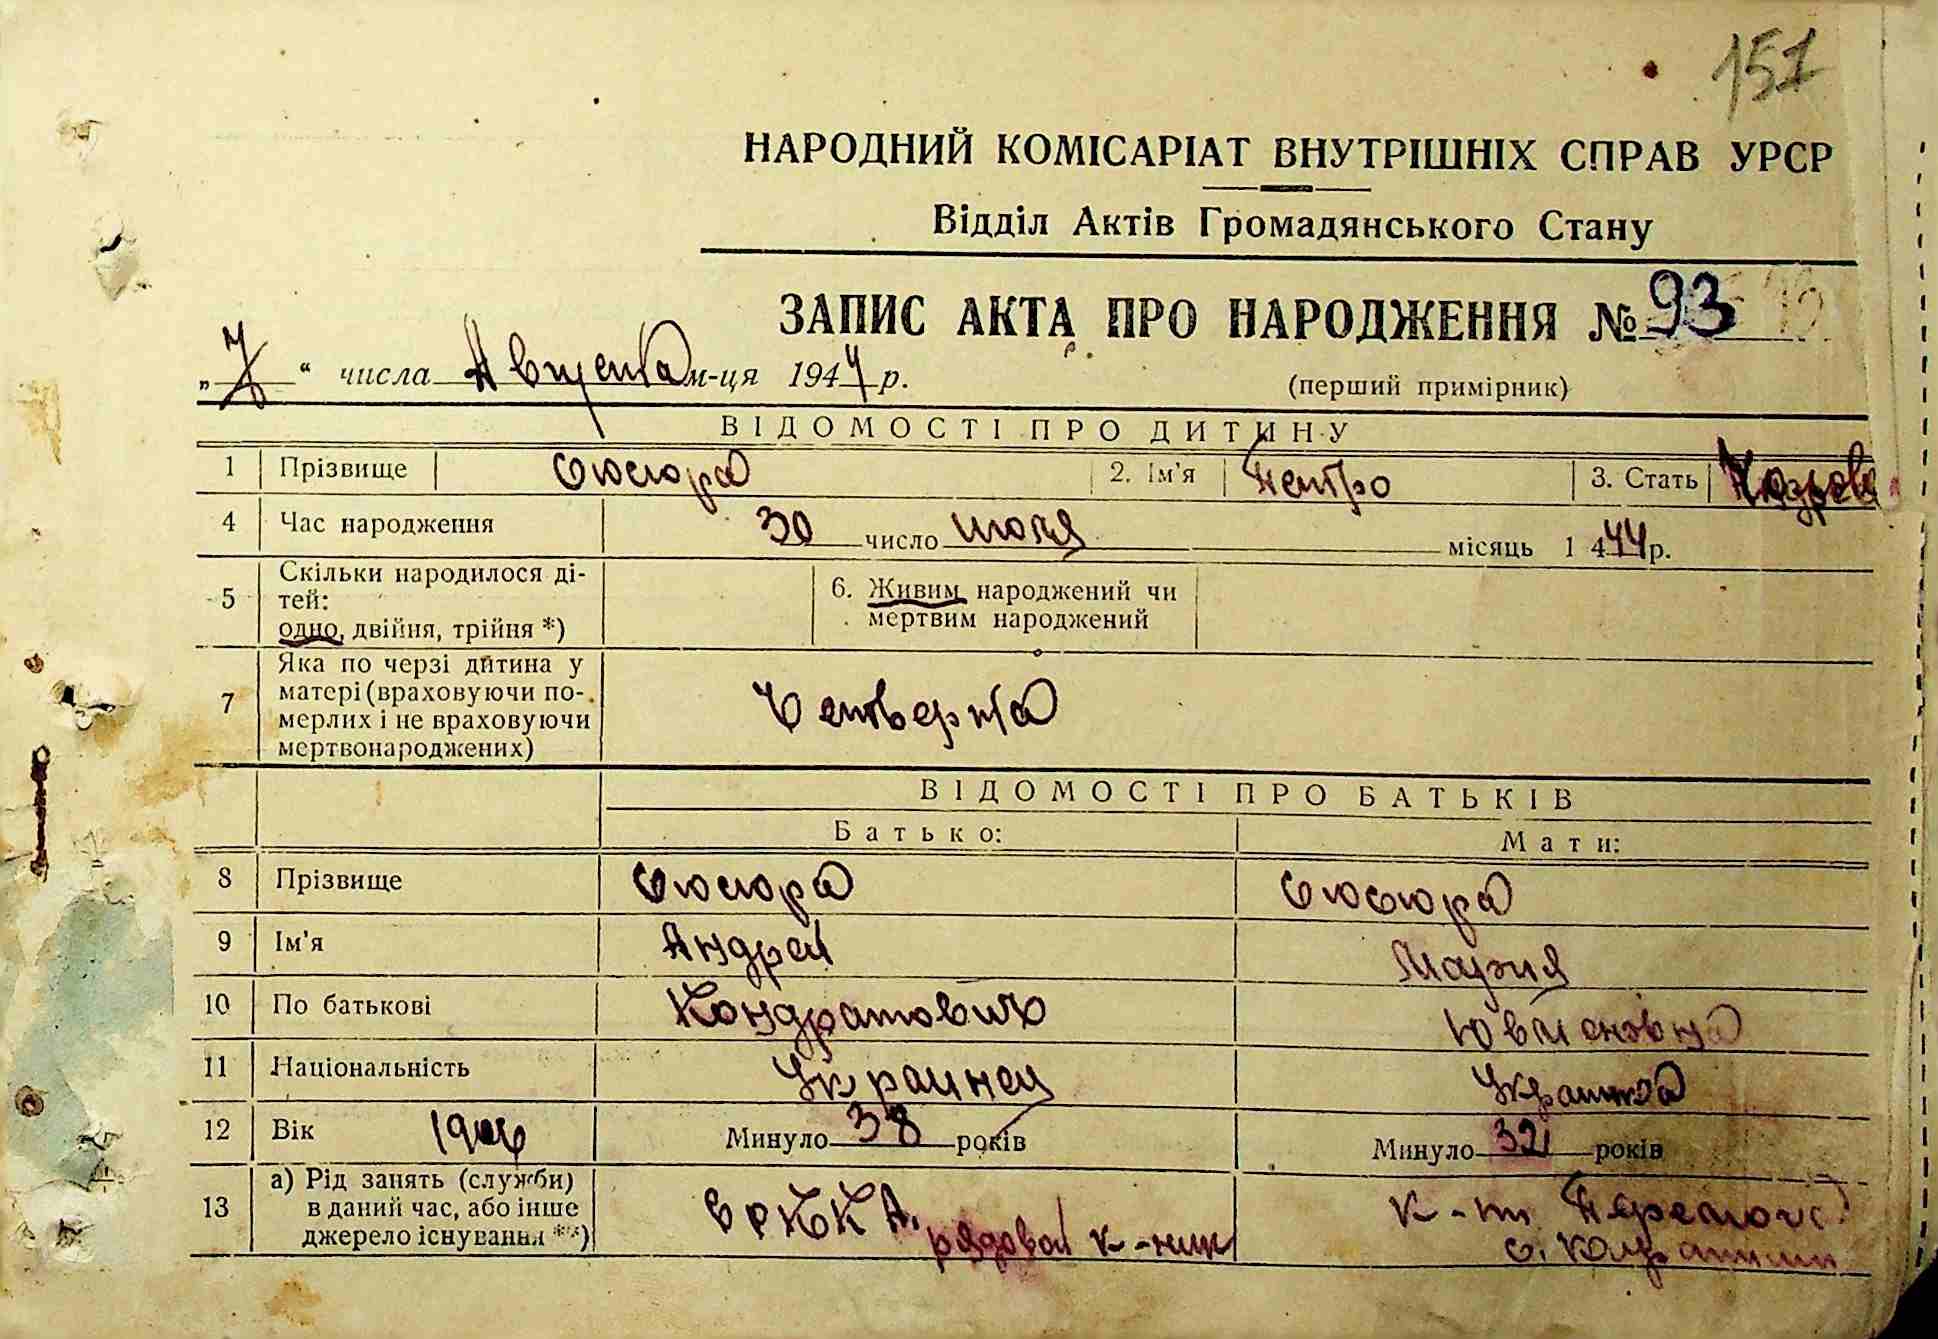 151
НАРОДНИЙ КОМІСАРІАТ ВНУТРІШНІХ СПРАВ УРСР
Відділ Актів Громадянського Стану
ЗАПИС АКТА ПРО НАРОДЖЕННЯ № 93
„ 7 “ числа Августа м-ця 1944 р. (перший примірник)
ВІДОМОСТІ ПРО ДИТИНУ
1 Прізвище Сюсюра 2. Ім'я Петро 3. Стать
4 Час народження 30 число июля місяць 1 444 р.
5 Скільки народилося ді-
тей:
одно, двійня, трійня *)
6. Живим народжений чи
мертвим народжений
7 Яка по черзі дитина у
матері (враховуючи по-
мерлих і не враховуючи
мертвонароджених)
Четверта
ВІДОМОСТІ ПРО БАТЬКІВ
Батько: Мати:
8 Прізвище Сюсюра Сюсюра
9 Ім'я Андрей Мария
10 По батькові Кондратович
11 Національність Украинец Украинка
12 Вік 1906 Минуло 38 років Минуло 32 років
13 а) Рід занять (служби)
в даний час, або інше
джерело існування **)
в РККА, рядовой к-ник